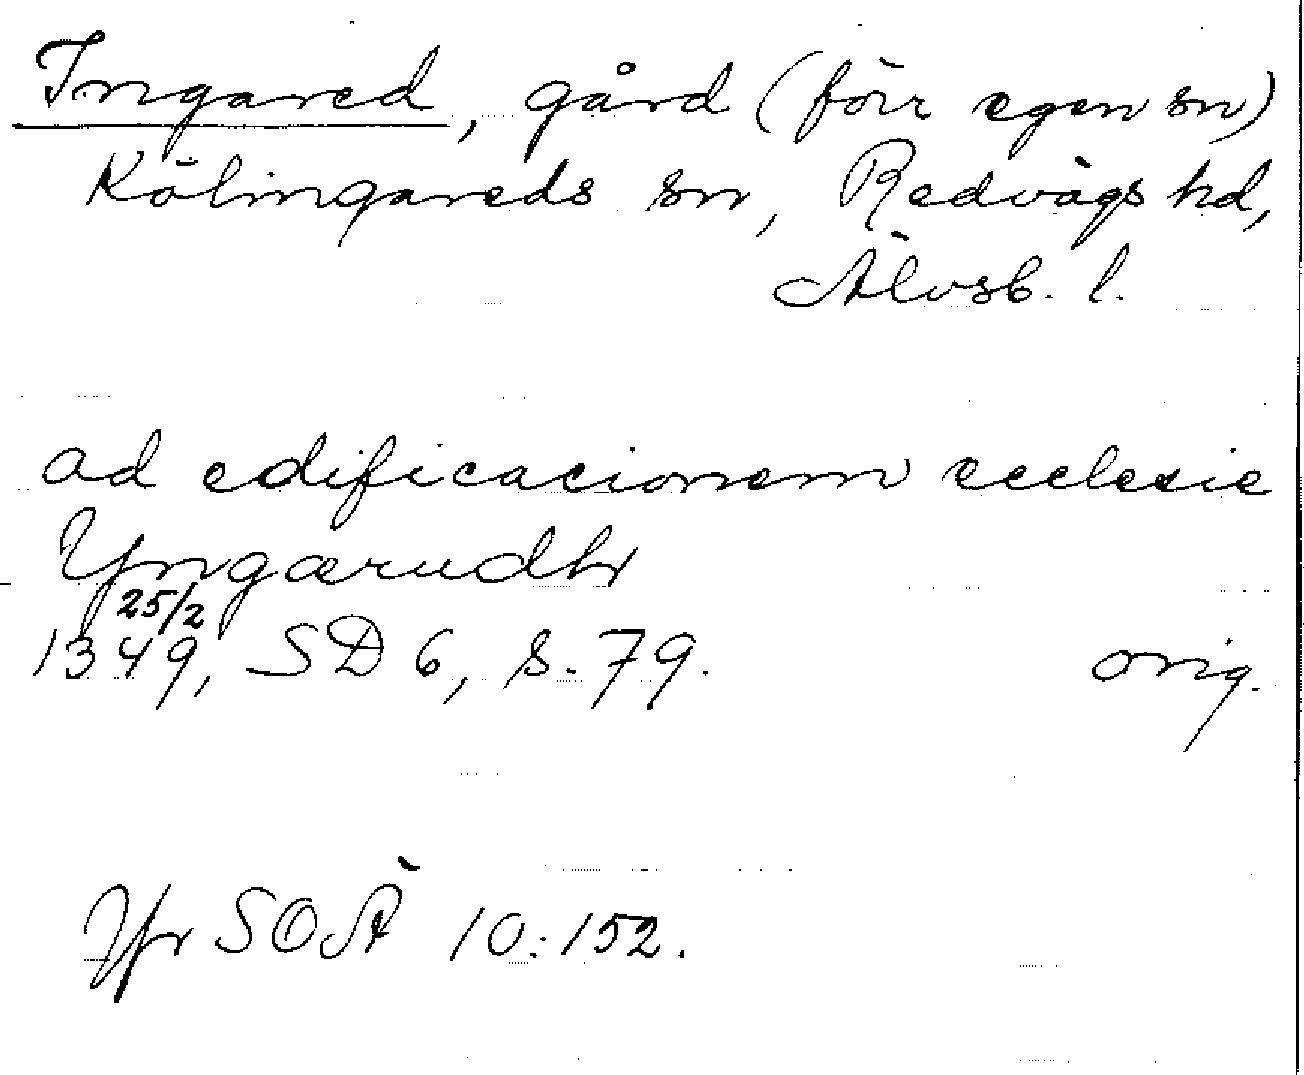 Ingared, gård (förr egen sn)
Kölingareds sn, Redvägs hd,
Älvsb. l.
ad edificacionem ecclesie
Yngærudhr
25/2
1349, SD 6, s. 79. orig.
Jfr SOÄ 10:152.